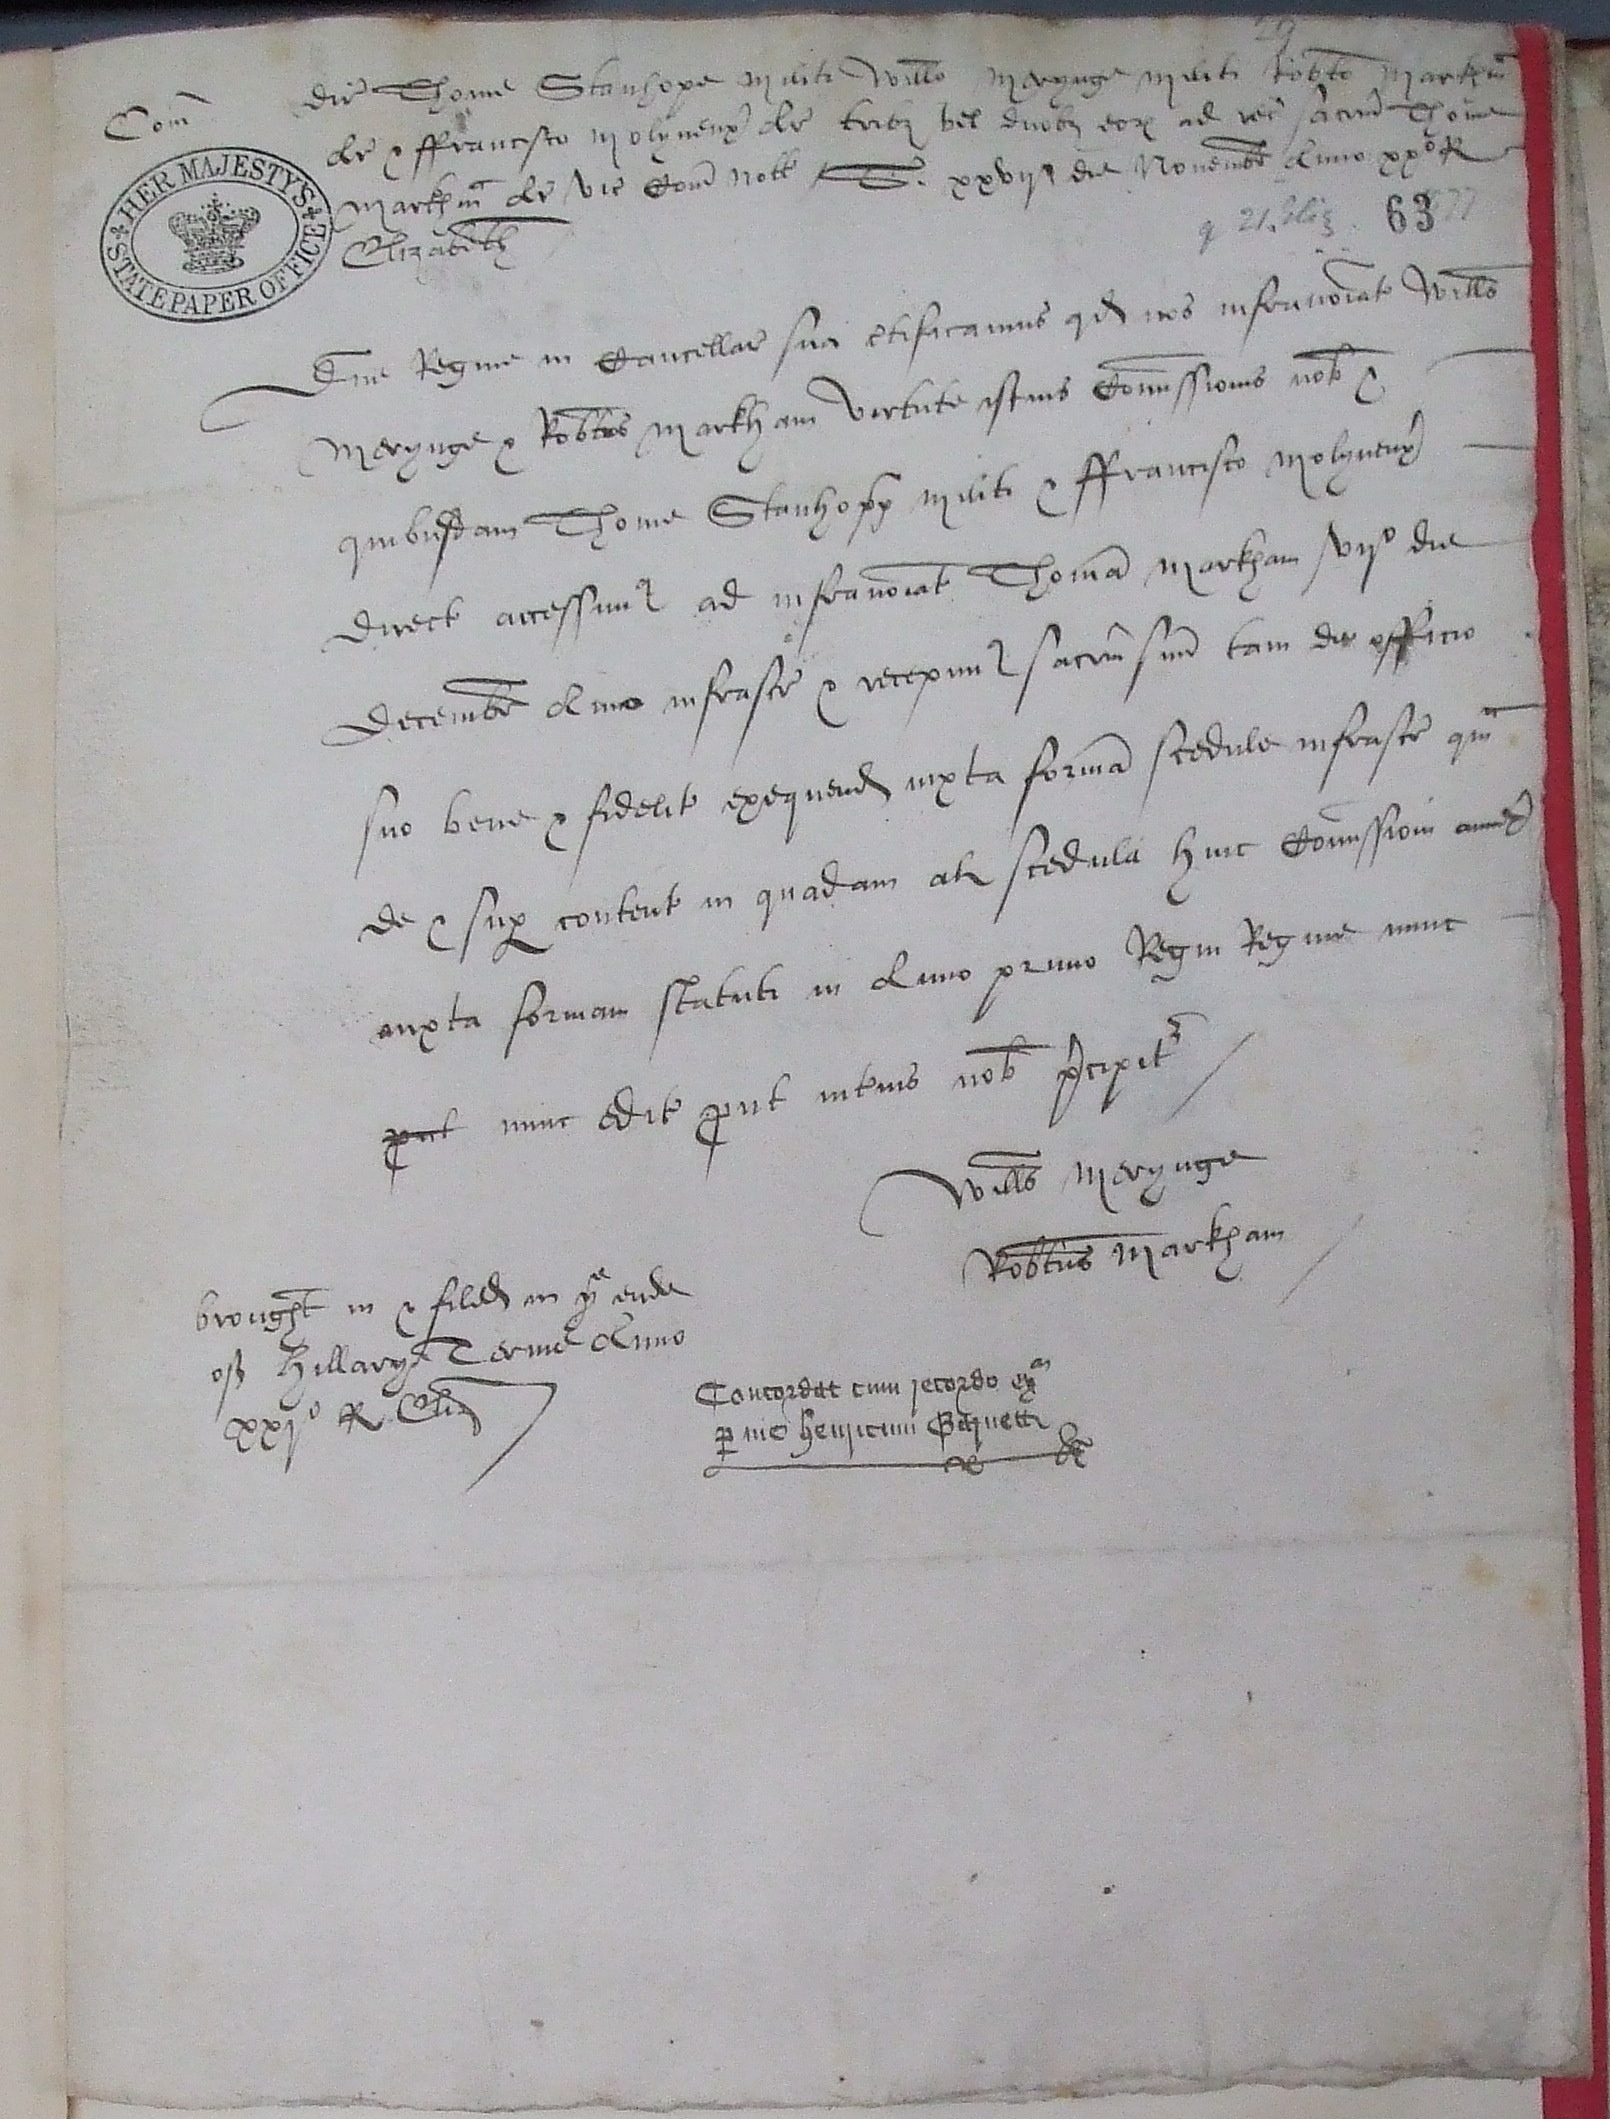 Com̃ dir̃ Thome Stanhope militi Willo Merynge militi Robto Markhm̃
Ar̃ & ffrancisco Molyneux Ar̃ tribȝ vel duobȝ eoꝝ ad rec̃ sacrm̃ Thome
Markhm̃ Ar̃ vic̃ Com̃ Nott T. xxviiº die Novembr̃ Anno xxº R
Elizabeth
q 21. Eliz. 63
HER MAJESTY'S STATE PAPER OFFICE
Dñe Regine in Cancellar̃ sua c̃tificamus qd nos infranoĩat Willus
Merynge & Robtus Markham virtute istius Com̃issionis nob &
quibusdam Thome Stanhopp militi & ffrancisco Molyneux
direct accessimꝰ ad infranoĩat Thomã Markham viiº die
Decembr̃ Anno infrascr̃ & recepimꝰ sacrm̃ suũ tam de officio
suo bene & fidelit exequend iuxta formã scedule infrascr̃ qm̃
de & sup̱ content in quadam al̃ scedula huic Com̃issioni annex̃
iuxta formam statuti in Anno primo Regni Regine nunc
p̱ut nunc edit p̱ut intius nob p̃cipitꝰ
Willus Merynge
Robtus Markham
brought in & filed in yᵉ ende
of Hillarye Terme Anno
xxjº R Eliz
Concordat cum recordo exᵐ
p̱ me Henricum